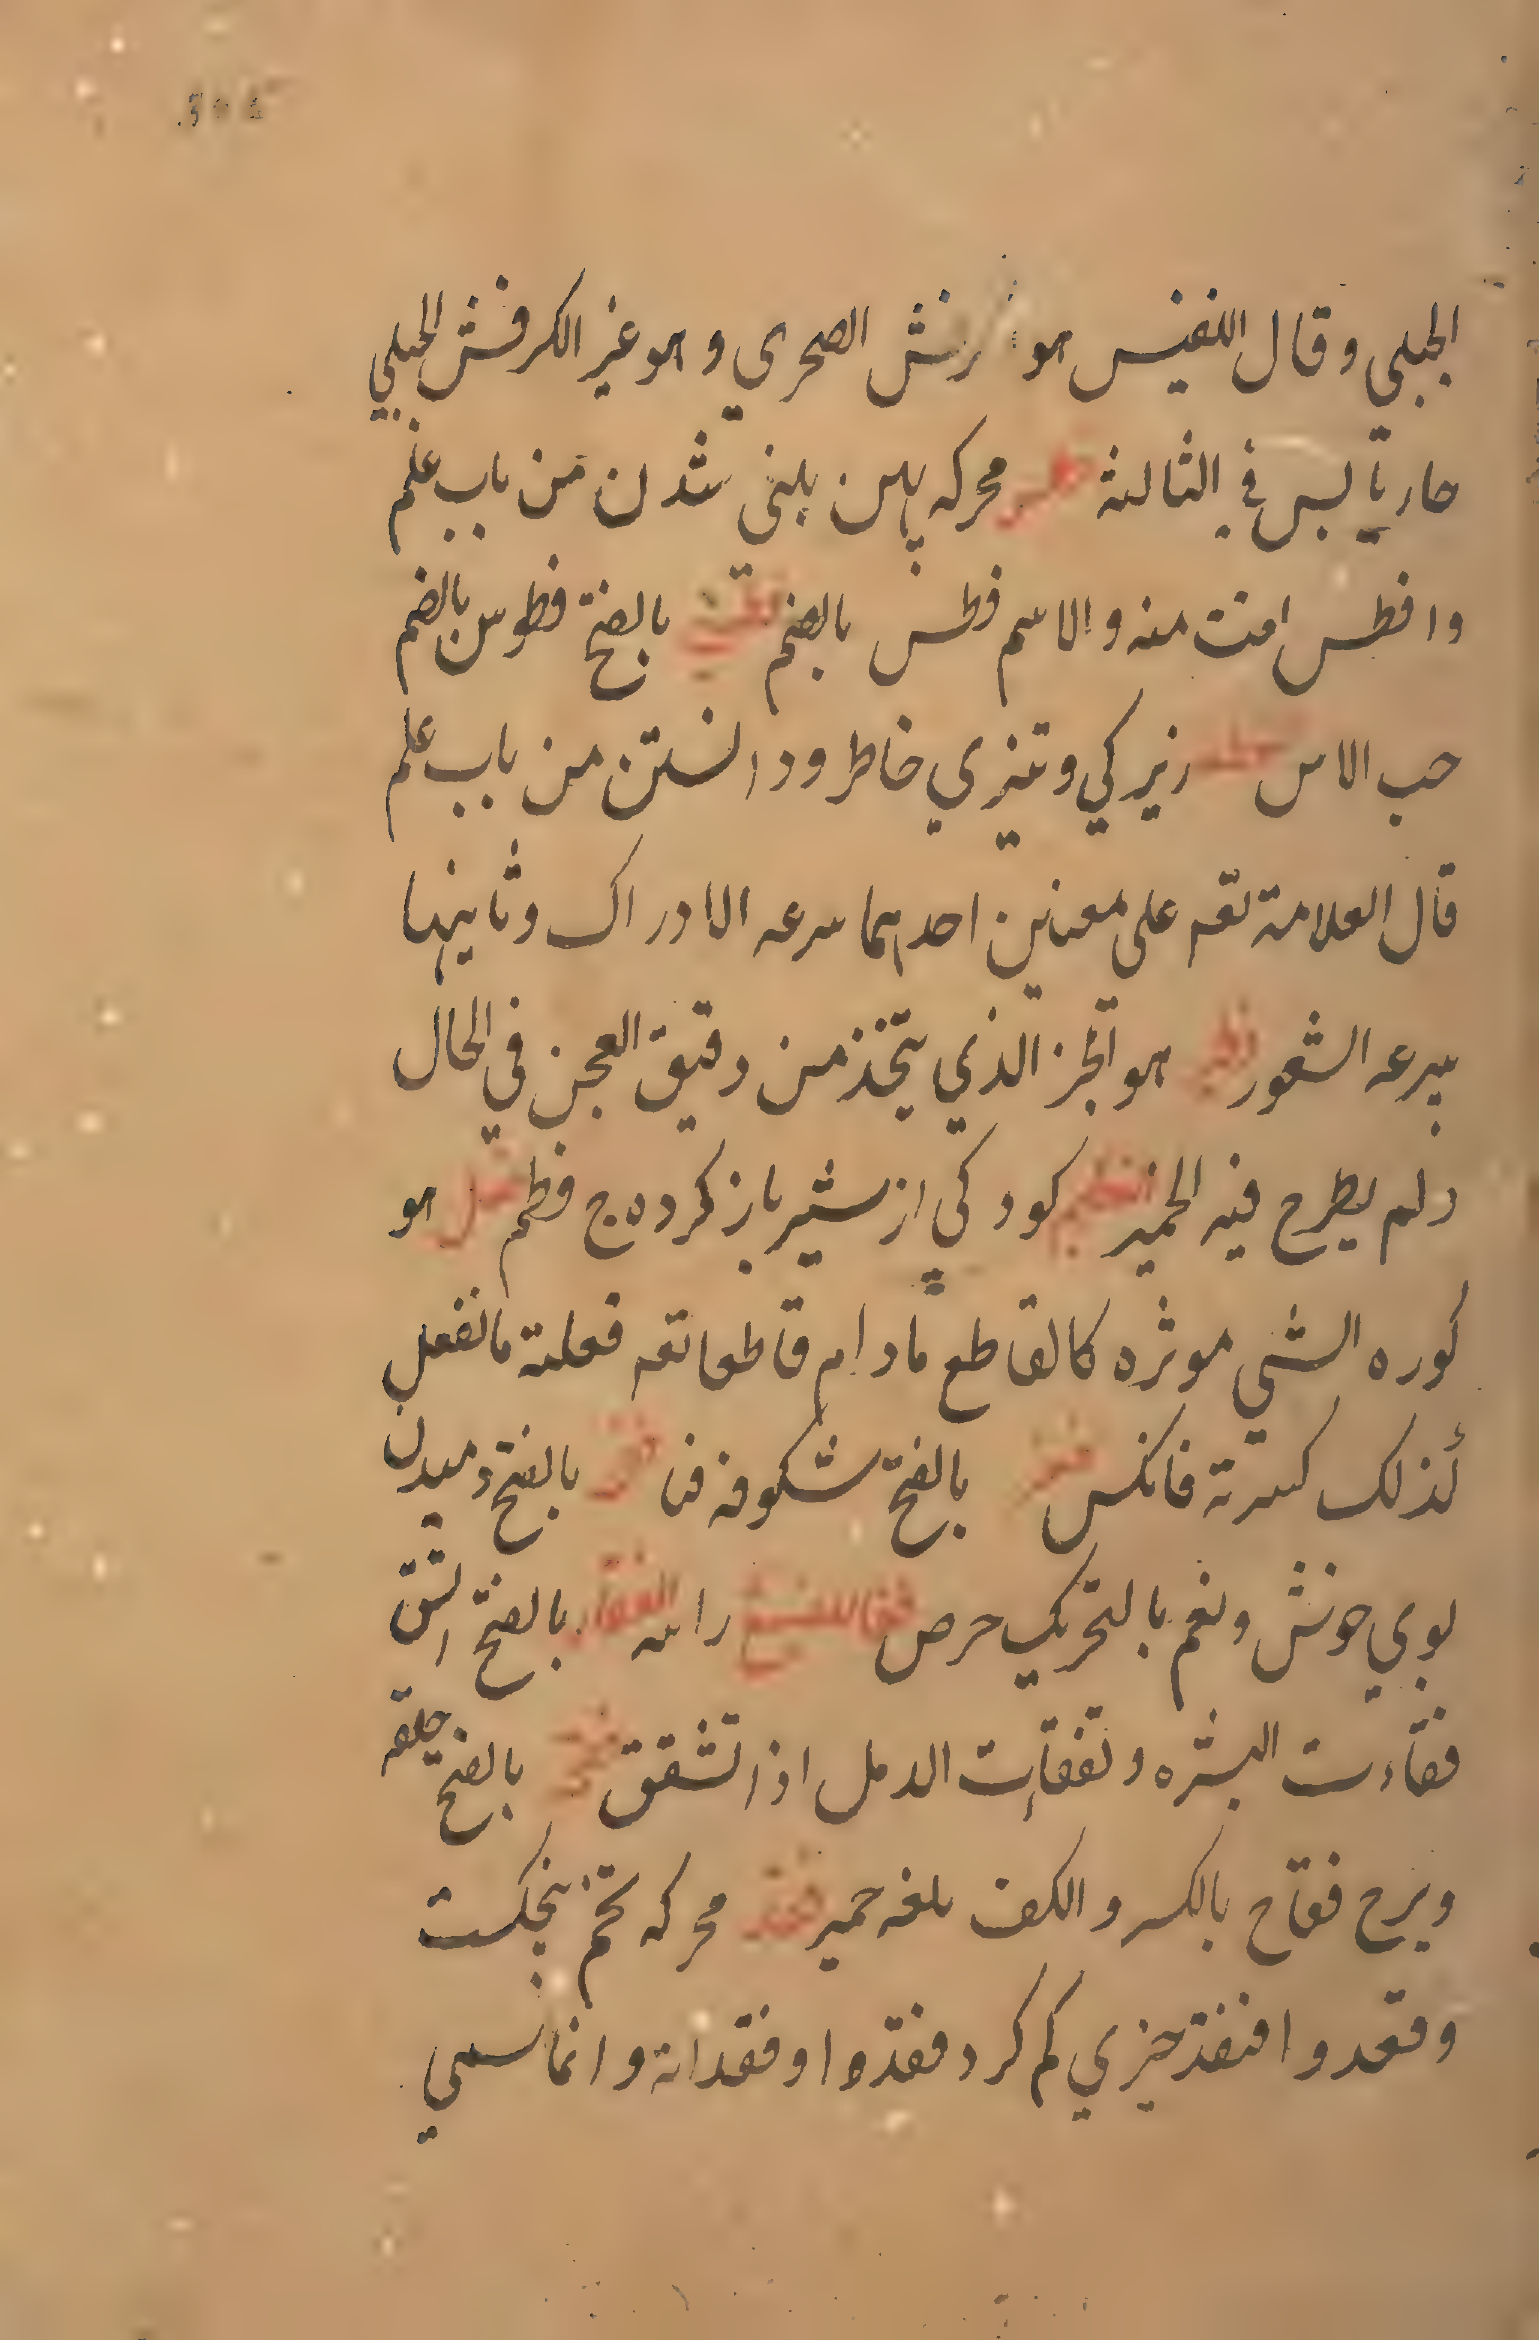 الجبلي وقال النفيس هو الصحري وهو غير الكرفش الجبلي
حار يابس في الثالثة محركه پهن بيني شدن من باب علم
وافطس امنت منه والاسم فطس بالضم بالفتح فطوس بالضم
حب الاس زيركي وتيزي خاطر ودانستن من باب علم
قال العلامة تقع على معنيين احدهما سرعه الادراك وثانيهما
سرعه الشعور فطير هو الخبز الذي يتخذ من دقيق العجين في الحال
ولم يطرح فيه الخمير الفطيم كودكي از شير باز كرده ج فطم فعل هو
كوره الشي موثره كالقاطع مادام قاطعا تقع فعلته مانفعل
لذلك كسرته فانكس فغر بالفتح شكوفه فنا بالفتح دميدن
بوي خوش وفغم بالتحريك حرص راسه الفقاء بالفتح الشق
فقاءت البشره وتفقات الدمل اذا تشقق بالفتح حلقه
ويرح فقاح بالكسر والكف بلغه حمير فقد محركه تخم پنجكست
وفقد وافتقد چيزي كم كرد فقده او فقدانه وانما سمي